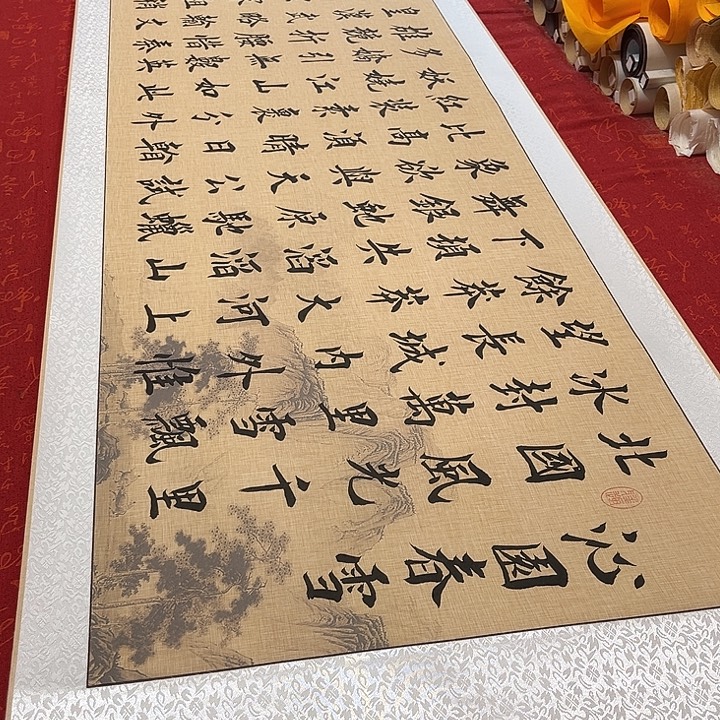 沁園春雪
北國風光千里
冰封萬里雪飄
望長城内外惟
餘莽莽大河上
下頓失滔滔山
舞銀蛇原馳蠟
象欲與天公試
比高須晴日看
紅裝素裹分外
妖嬈江山如此
多嬌引無數英
雄競折腰惜秦
皇漢武略輸文
祖稍